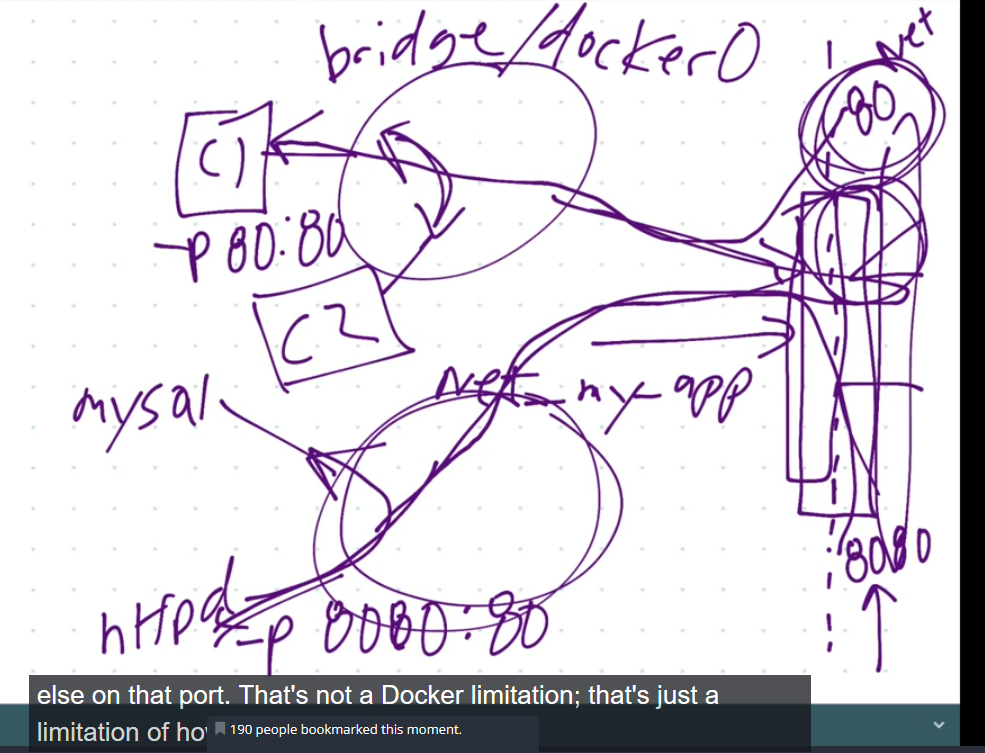 bridge/docker0
Net
80
C1
-p 80:80
C2
mysql
Net_my_app
8080
httpd
-p 8080:80
else on that port. That's not a Docker limitation; that's just a
limitation of ho
190 people bookmarked this moment.